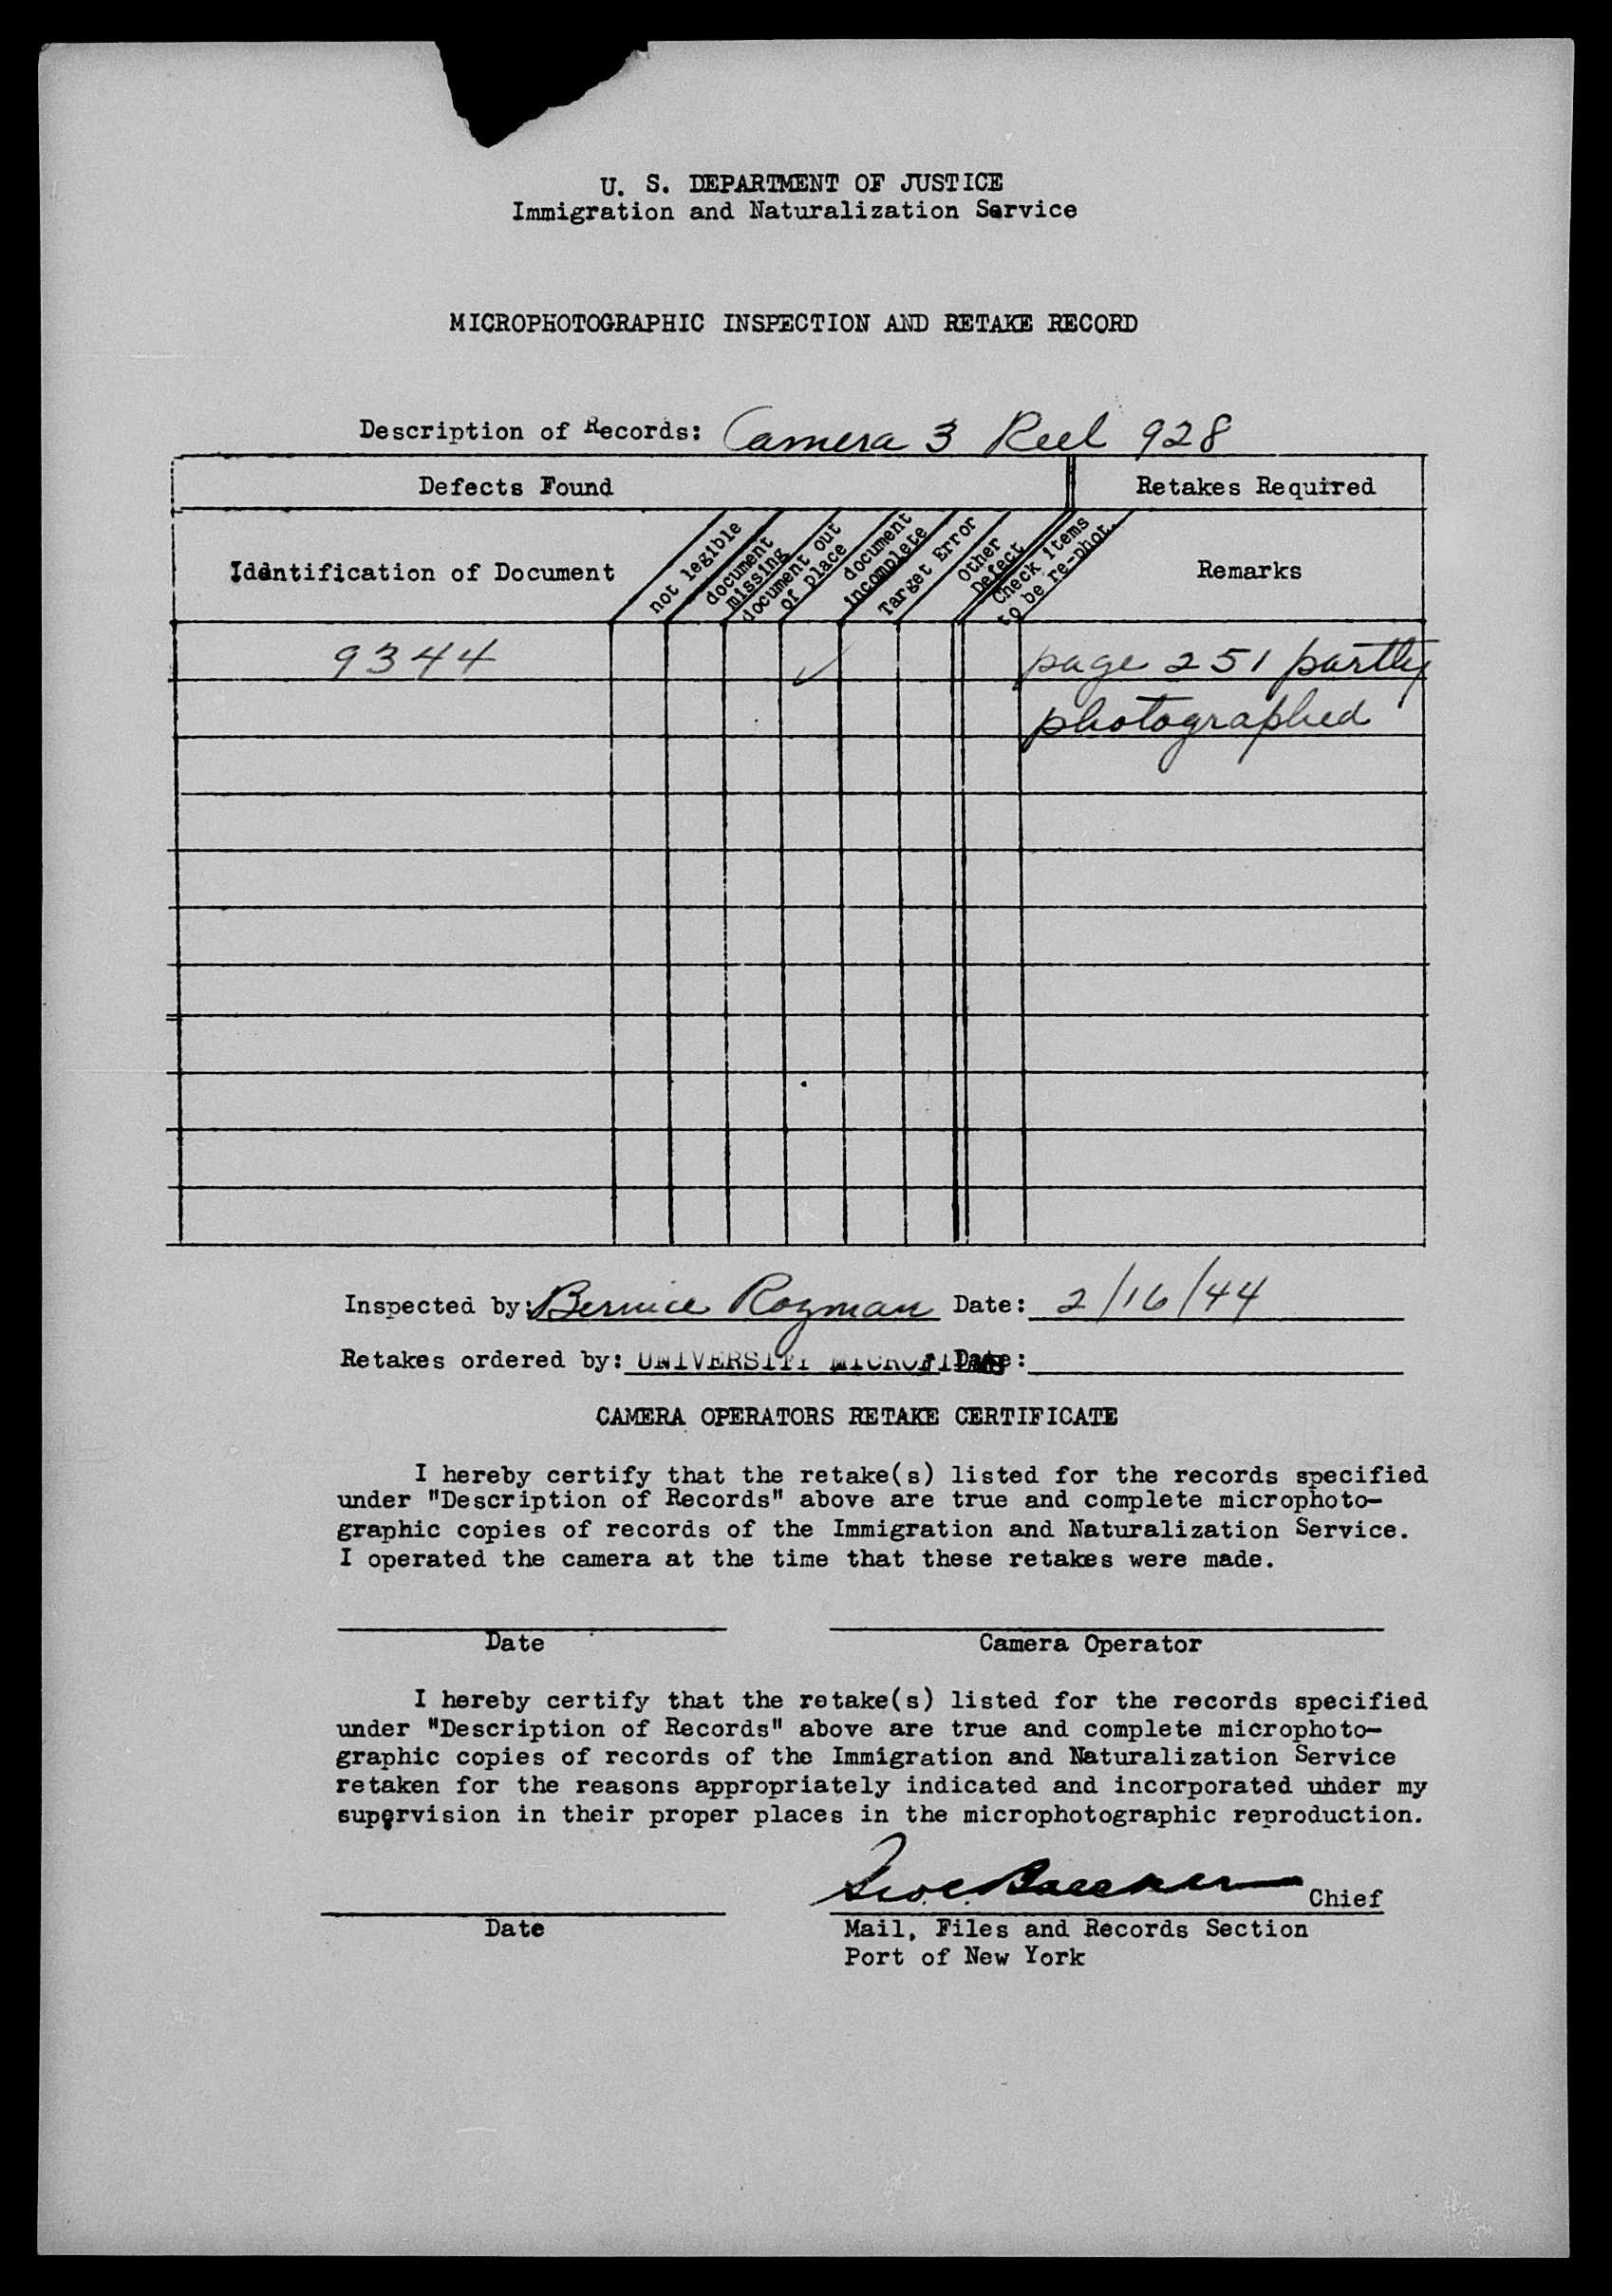 U. S. DEPARTMENT OF JUSTICE
Immigration and Naturalization Service
MICROPHOTOGRAPHIC INSPECTION AND RETAKE RECORD
Description of Records: Camera 3 Reel 928
Defects Found
Retakes Required
Identification of Document
not legible
document
missing
document out
of place
document
incomplete
Target Error
Other
Defect
Check items
to be re-phot.
Remarks
9344 ✓ page 251 partly
photographed
Inspected by: Bernice Rozman Date: 2/16/44
Retakes ordered by: UNIVERSITY MICROFILMS Date:
CAMERA OPERATORS RETAKE CERTIFICATE
I hereby certify that the retake(s) listed for the records specified
under "Description of Records" above are true and complete microphoto-
graphic copies of records of the Immigration and Naturalization Service.
I operated the camera at the time that these retakes were made.
Date
Camera Operator
I hereby certify that the retake(s) listed for the records specified
under "Description of Records" above are true and complete microphoto-
graphic copies of records of the Immigration and Naturalization Service
retaken for the reasons appropriately indicated and incorporated under my
supervision in their proper places in the microphotographic reproduction.
Chief
Date
Mail, Files and Records Section
Port of New York